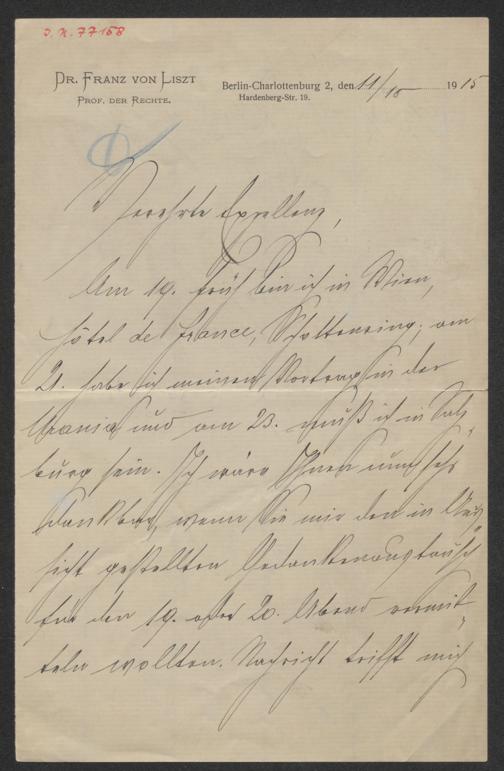 J. N. 77158
DR. FRANZ VON LISZT
PROF. DER RECHTE.
Berlin-Charlottenburg 2, den 11/10 1915
Hardenberg-Str. 19.
Verehrte Exzellenz,
Am 19. früh bin ich in Wien,
Hôtel de France, Schottenring; am
21. habe ich meinen Vortrag in der
Urania und am 23. muß ich in Salz-
burg sein. Ich wäre Ihnen nun sehr
dankbar, wenn Sie mir den in Aus-
sicht gestellten Gedankenaustausch
für den 19. oder 20. Abend vermit-
teln wollten. Nachricht trifft mich